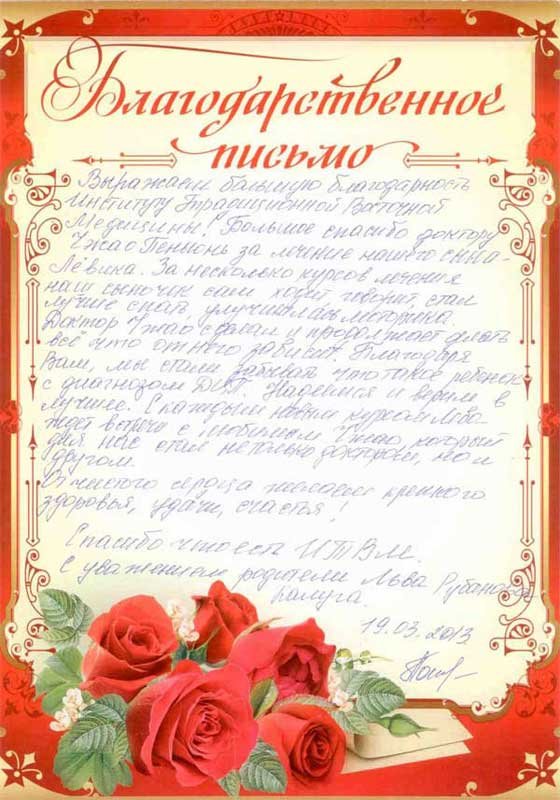 Благодарственное
письмо
Выражаем большую благодарность
Институту Традиционной Восточной
Медицины! Большое спасибо доктору
Чжао Пеньюнь за лечение нашего сына-
Лёвика. За несколько курсов лечения
наш сыночек сам ходит, говорит, стал
лучше спать, улучшилась моторика.
Доктор Чжао сделал и продолжает делать
всё что от него зависит. Благодаря
Вам, мы стали забывать что такое ребёнок
с диагнозом ДЦП. Надеемся и верим в
лучшее. С каждым новым курсом Лёва
ждёт встречи с любимым Чжао, который
для нас стал не только доктором, но и
другом.
От чистого сердца желаем крепкого
здоровья, удачи, счастья!
Спасибо что есть ИТВМ.
С уважением родители Льва Рубанова
Калуга.
19.03.2013